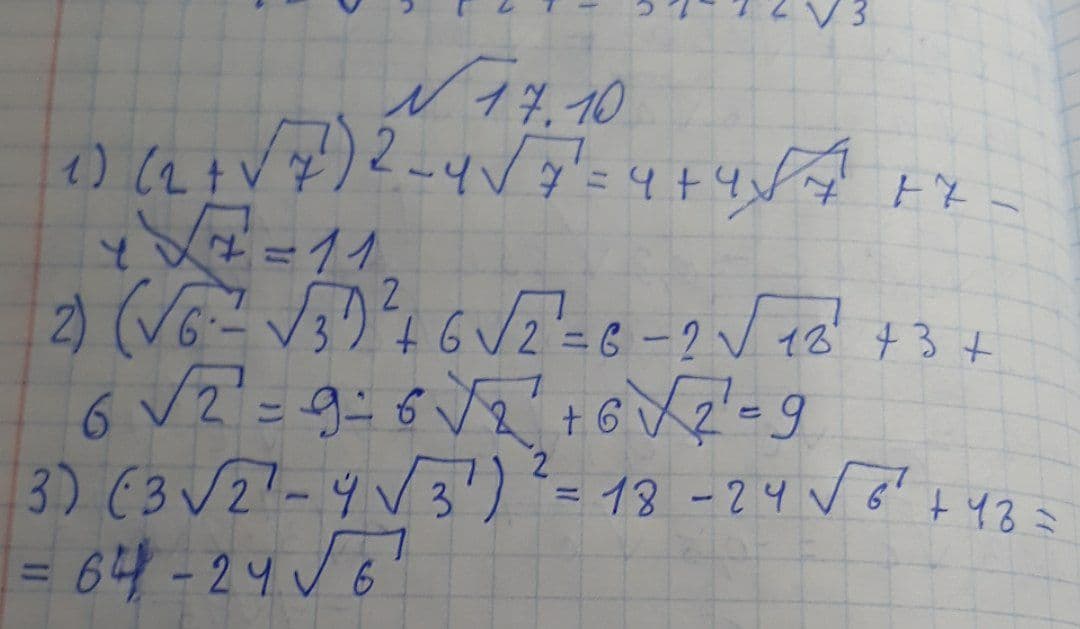 √17.10
1) (2+√7)² - 4√7 = 4 + 4√7 + 7 -
4√7 = 11
2) (√6 - √3)² + 6√2 = 6 - 2√18 + 3 +
6√2 = 9 - 6√2 + 6√2 = 9
3) (3√2 - 4√3)² = 18 - 24√6 + 48 =
= 64 - 24√6